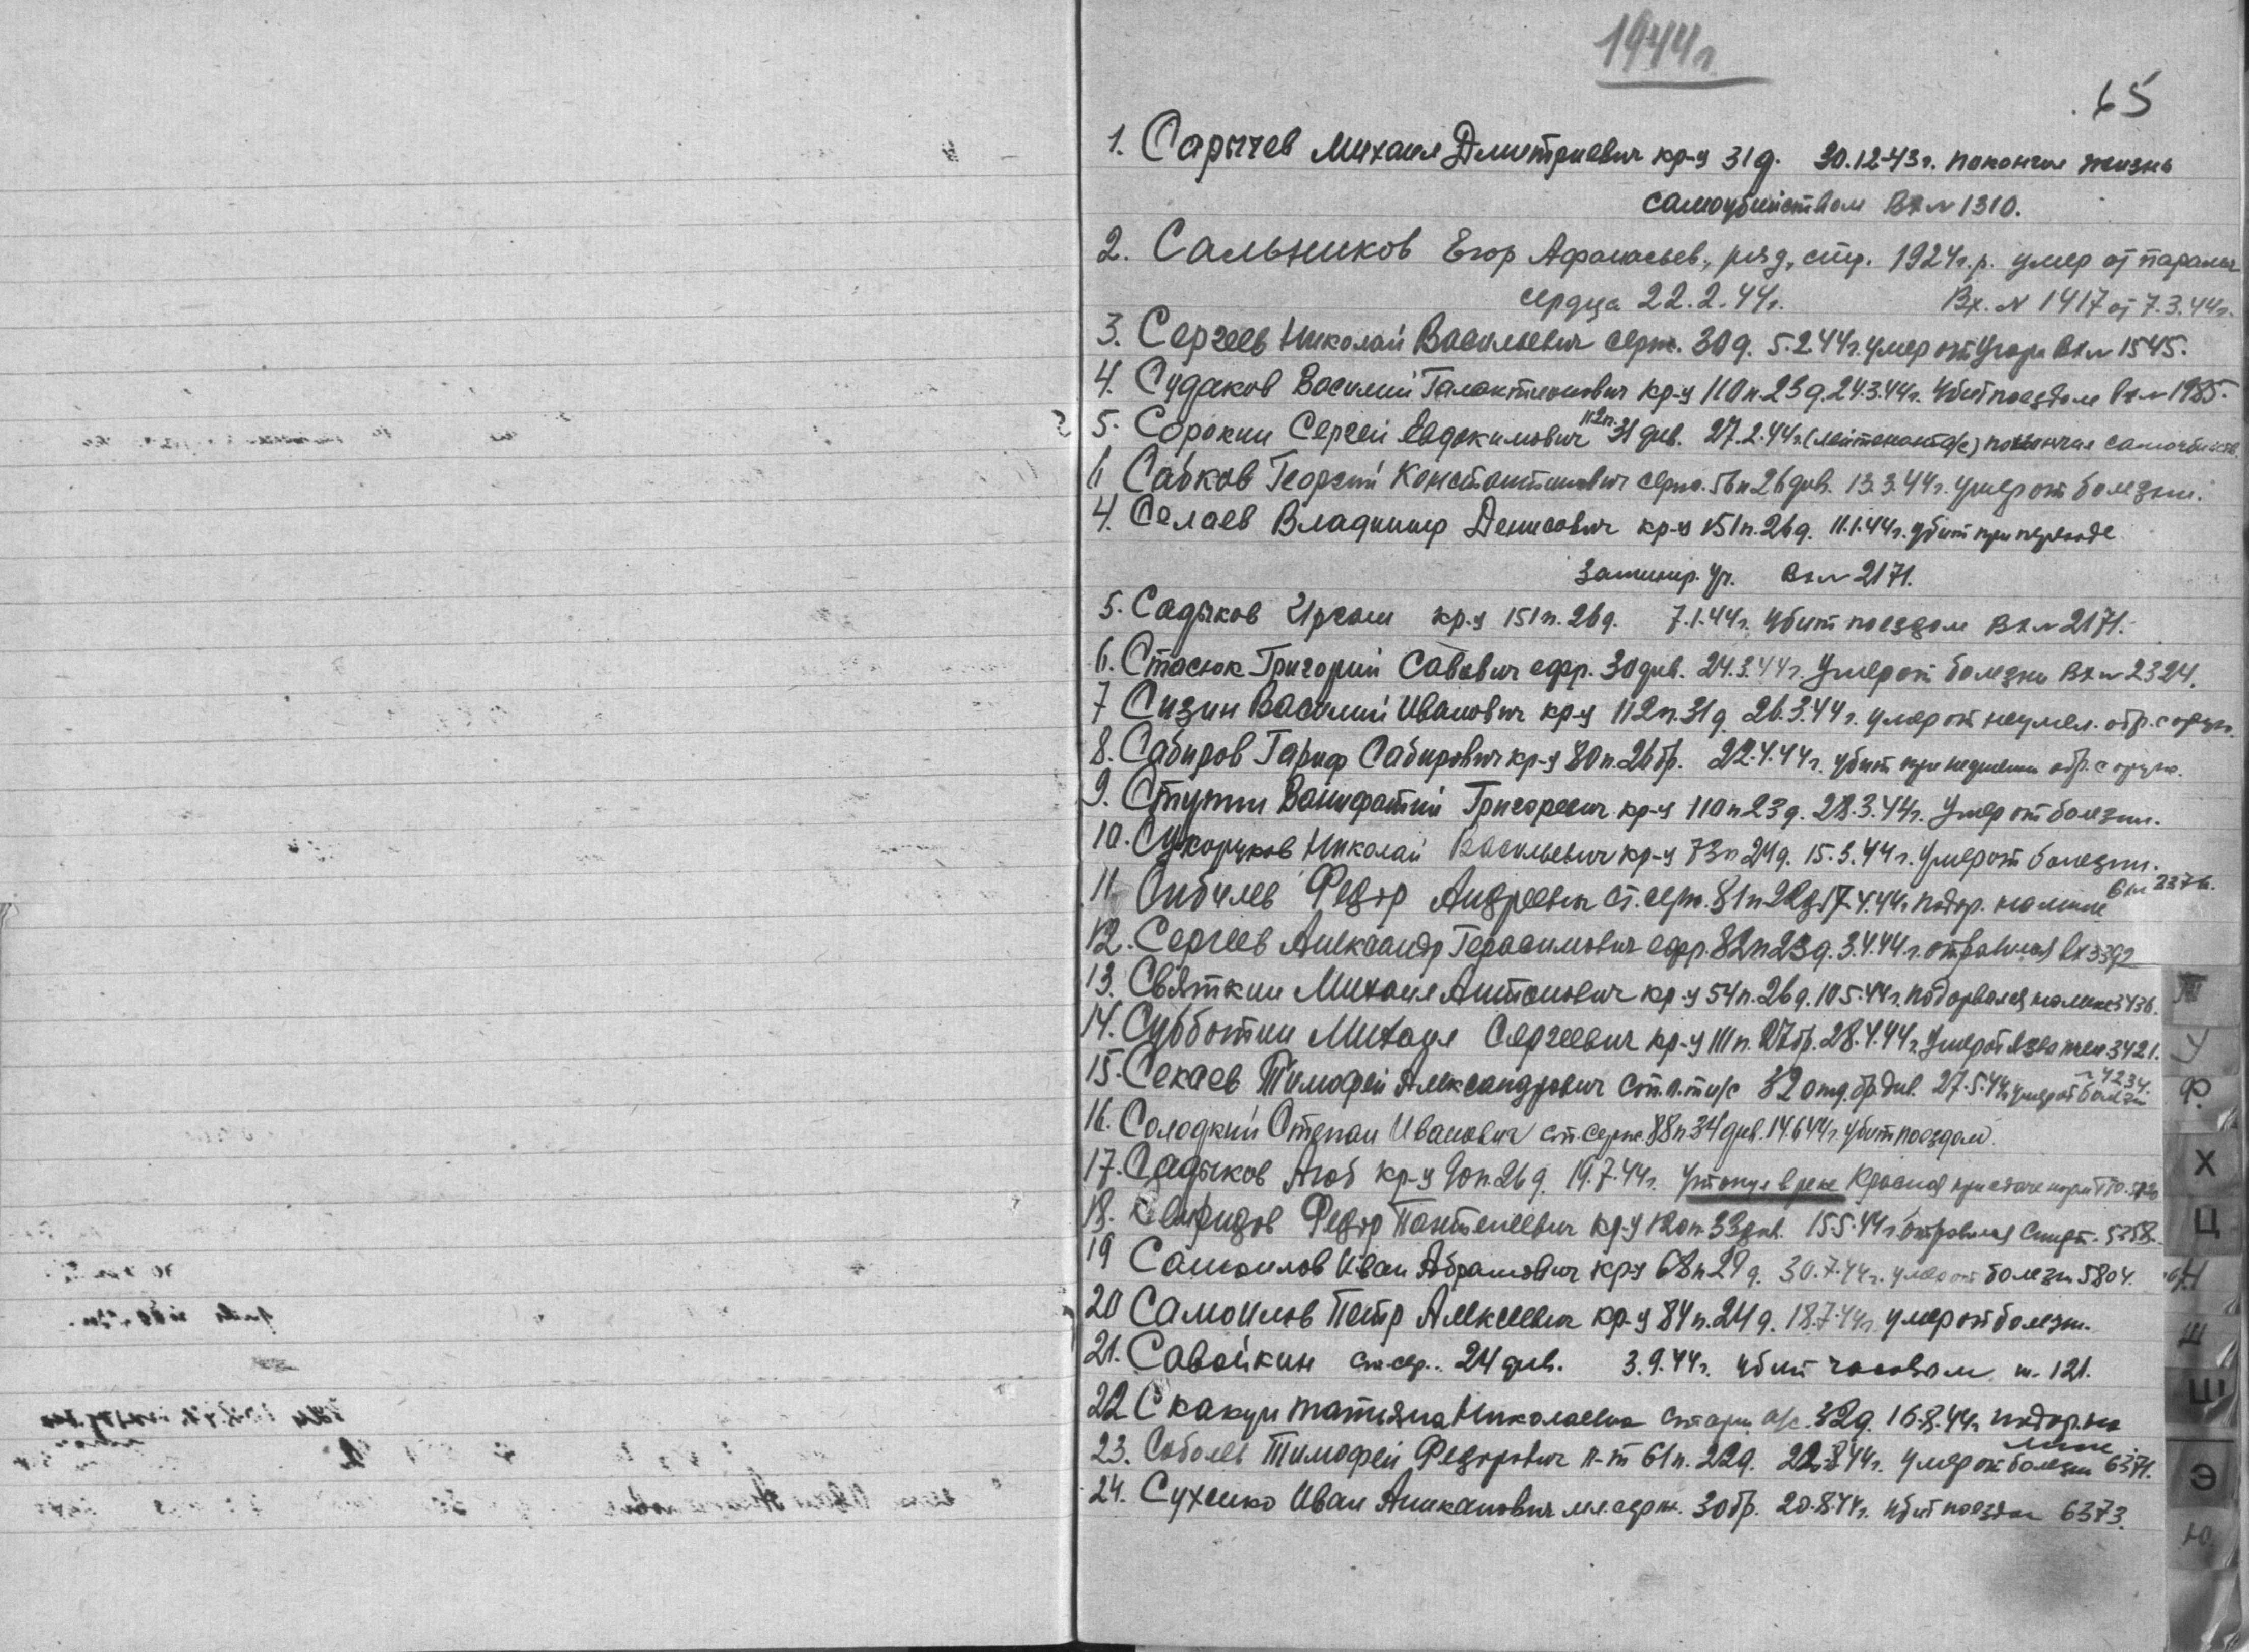 1944г.
65
1. Сарычев Михаил Дмитриевич кр-ц 31д. 30.12.43г. покончил жизнь
самоубийством Вх№1310.
2. Сальников Егор Афанасьев., ряд, стр. 1924г.р. умер от паралич
сердца 22.2.44г. Вх. № 1417 от 7.3.44г.
3. Сергеев Николай Васильевич серж. 30д. 5.2.44г. умер от угара Вх№ 1545.
4. Судаков Василий Галактионович кр-ц 110п.23д.24.3.44г. Убит поездом Вх№1985.
5. Сорокин Сергей Евдокимович 112п. 31 див. 27.2.44г. (лейтенант а/с) покончил самоубийств.
6 Сабков Георгий Константинович серж. 56п 26див. 13.3.44г. умер от болезни.
4. Селаев Владимир Денисович кр-ц 151п.26д. 11.1.44г. убит при переходе
заминир. уч. Вх№ 2171.
5. Садыков Иргаш кр-ц 151п.26д. 7.1.44г. Убит поездом Вх№2171.
6. Стасюк Григорий Саввович ефр. 30див. 24.3.44г. Умер от болезни Вх№2324.
7 Сизин Василий Иванович кр-ц 112п.31д 26.3.44г. умер от неумел. обр. с оруж.
8. Сабиров Гариф Сабирович кр-ц 80п.26бр. 22.4.44г. убит при неумении обр. с оруж.
9. Ступин Вонифатий Григорьевич кр-ц 110п23д. 28.3.44г. Умер от болезни.
10. Сукоруков Николай Васильевич кр-ц 73п 24д. 15.3.44г. Умер от болезни.
11 Сибилев Федор Андреевич ст. серж. 81п22д 17.4.44г. подор. на мине Вх№ 3376.
12. Сергеев Александр Герасимович ефр. 82п23д. 3.4.44г. отравился Вх3392
13. Святкин Михаил Антонович кр-ц 54п.26д. 10.5.44г. подорвался на мине 3436.
14. Субботин Михаил Сергеевич кр-ц 111п. 27бр. 28.4.44г. Умер от язва жел 3421.
15. Секаев Тимофей Александрович ст. л-т и/с 32 отд. бр. див. 27.5.44г. умер от болезни №4234.
16. Солодкий Степан Иванович ст. серж. 88п.34див. 14.6.44г. убит поездом.
17. Садыков Агоб кр-ц 90п.26д. 19.7.44г. Утонул в реке Красная при сдаче норм ГТО.
18. Свиридов Федор Пантелеевич кр-ц 120п. 33див. 15.5.44г. отравился спирт. 5358.
19 Самойлов Иван Абрамович кр-ц 68п29д. 30.7.44г. умер от болезн 5804.
20 Самойлов Петр Алексеевич кр-ц 84п.24д. 18.7.44г. умер от болезн.
21. Савойкин ст. сер.. 24 див. 3.9.44г. убит часовым т. 121.
22 Скакун Татьяна Николаевна старш а/с. 32д. 16.8.44г. подор. на
мине
23. Соболев Тимофей Федорович л-т 61п. 22д. 22.8.44г. Умер от болезни 6371.
24. Сухенко Иван Аникапович мл. серж. 30бр. 20.8.44г. убит поездом 6373.
У
Ф
Х
Ц
Ч
Ш
Щ
Э
Ю